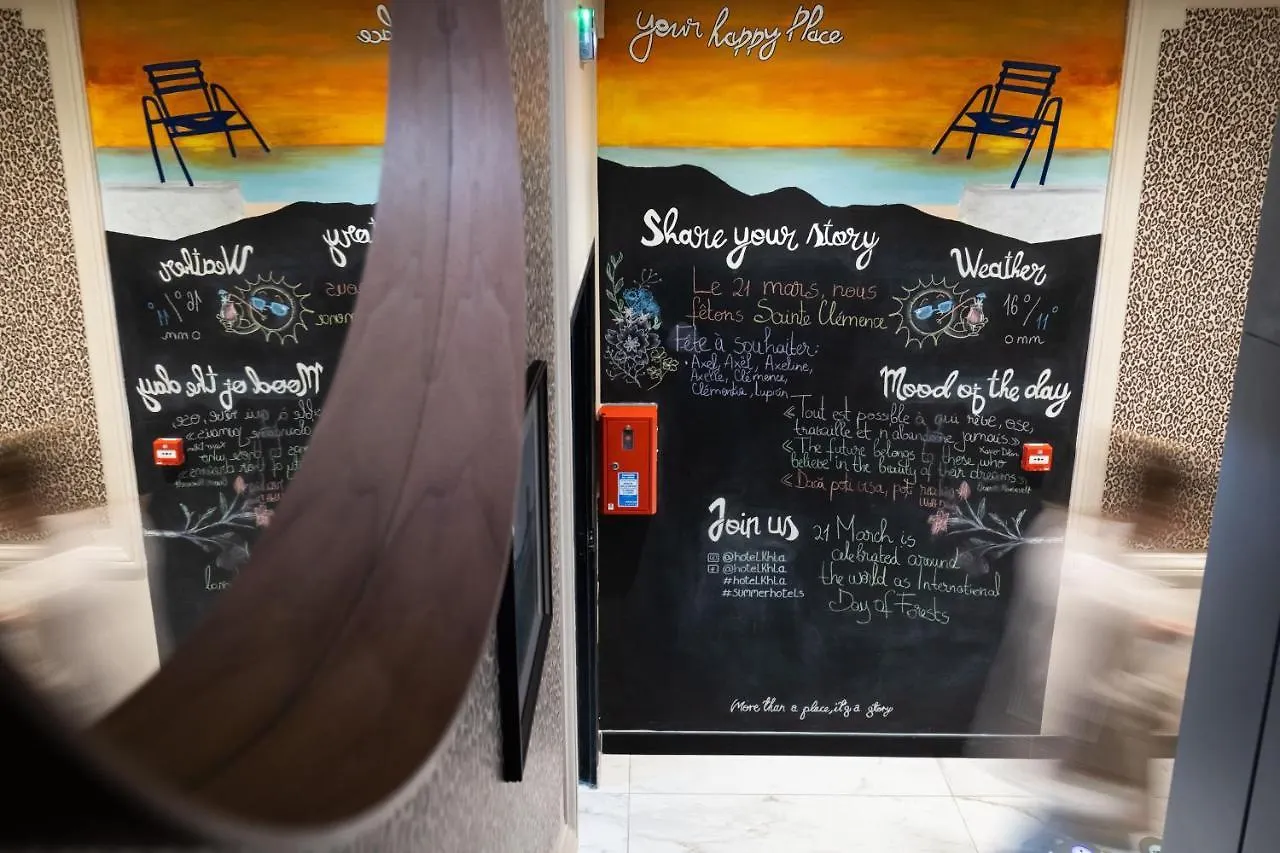 your happy Place
Share your story
Le 21 mars, nous
fêtons Sainte Clémence
Fête à souhaiter:
• Axel, Axël, Axeline,
Axelle, Clémence,
Clémentia, Lupicin
Weather
16°/11°
0 mm
Mood of the day
«Tout est possible à qui rêve, ose,
travaille et n'abandonne jamais»
«The future belongs to those who
believe in the beauty of their dreams»
«Dacă poți visa, poți
Join us
@hotel.Khla
@hotel.Khla
#hotel.Khla
#summerhotels
21 March is
celebrated around
the world as International
Day of Forests
More than a place, it's a story